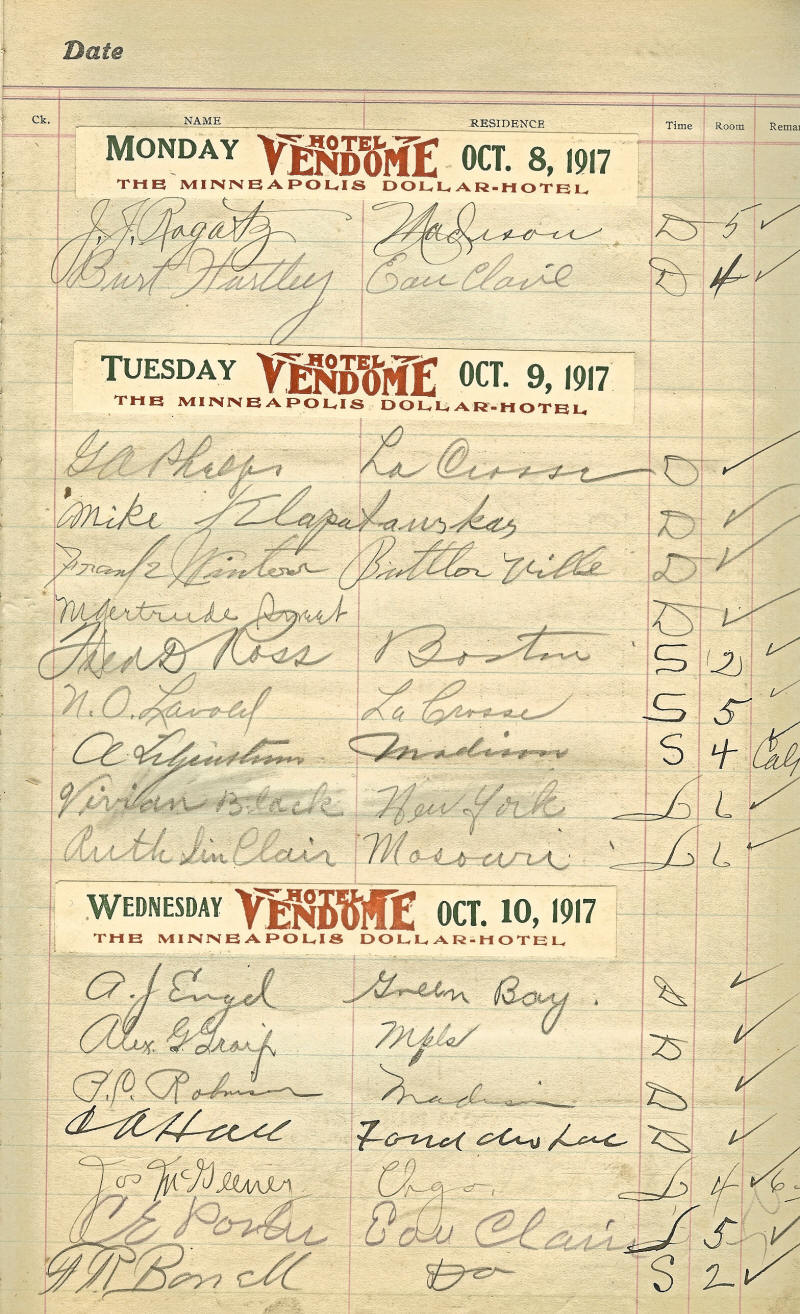 Date
Ck. NAME RESIDENCE Time Room Remar
MONDAY HOTEL VENDOME OCT. 8, 1917
THE MINNEAPOLIS DOLLAR-HOTEL
J. J. Ragatz Madison D 5 ✓
Burt Hartley Eau Claire D 4 ✓
TUESDAY HOTEL VENDOME OCT. 9, 1917
THE MINNEAPOLIS DOLLAR-HOTEL
G A Phelps La Crosse D ✓
Mike D ✓
Winters Buttlor Ville D ✓
Gertrude D ✓
Fred D Ross Boston S 2 ✓
N. O. Lavold La Crosse S 5 ✓
A Madison S 4 ✓
Vivian Black New York L 6 ✓
Ruth Sin Clair Mosouri L 6 ✓
WEDNESDAY HOTEL VENDOME OCT. 10, 1917
THE MINNEAPOLIS DOLLAR-HOTEL
A. J Engel Green Bay. D ✓
Alex. G. Mpls D ✓
Robinson Madison D ✓
C A Hall Fond du Lac D ✓
Jos McGeeney L 4 ✓
C E Eau Claire L 5 ✓
Do S 2 ✓